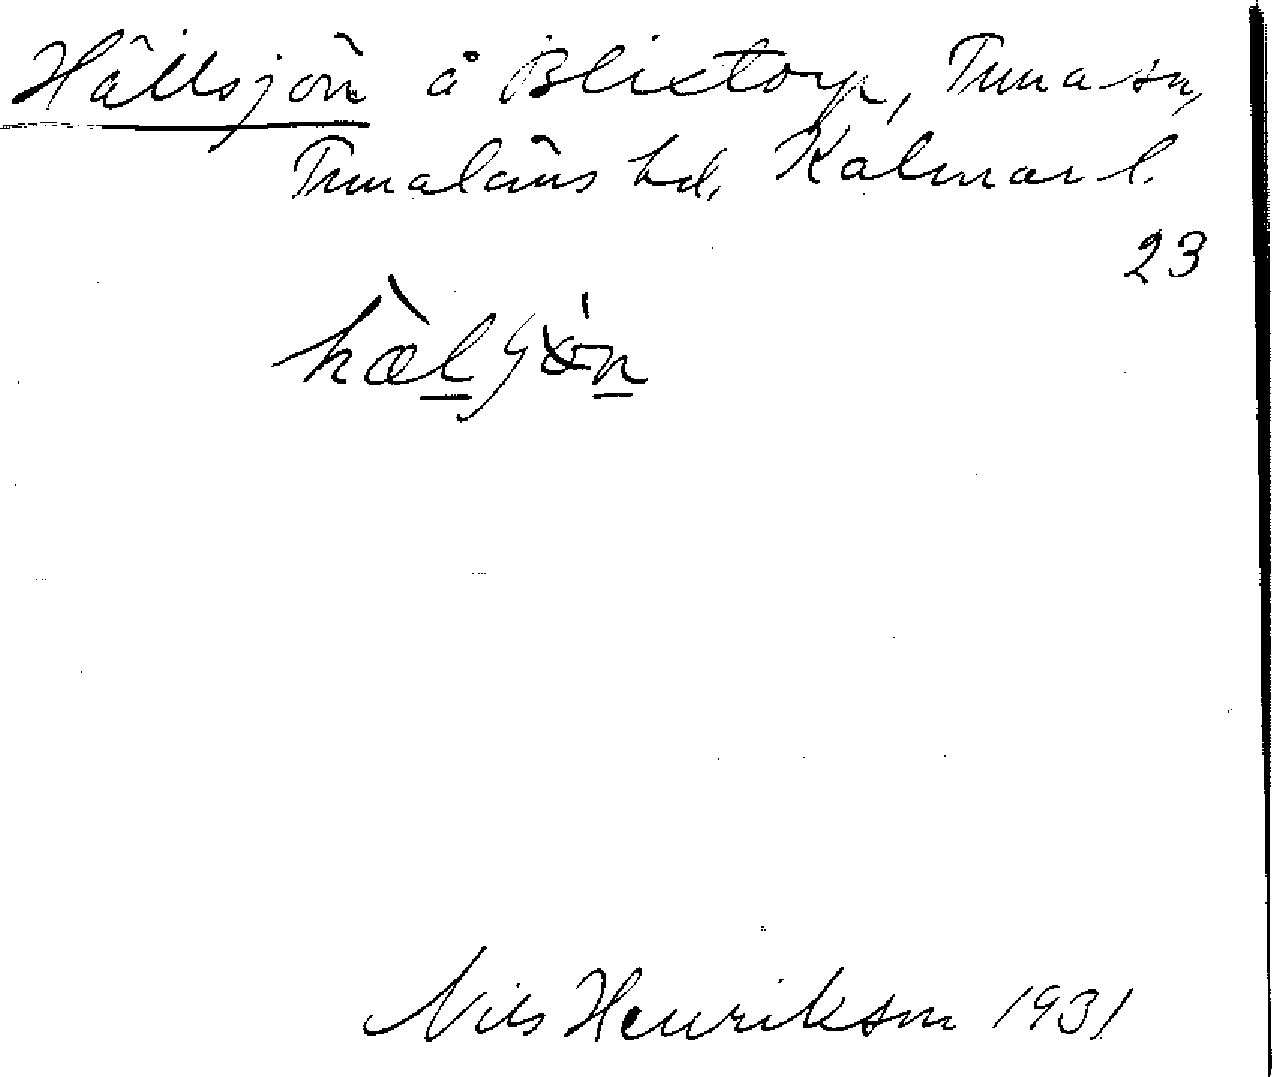 Hällsjön å Blixtorp, Tuna sn,
Tunaläns hd, Kalmar l.
23
Nils Henrikson 1931